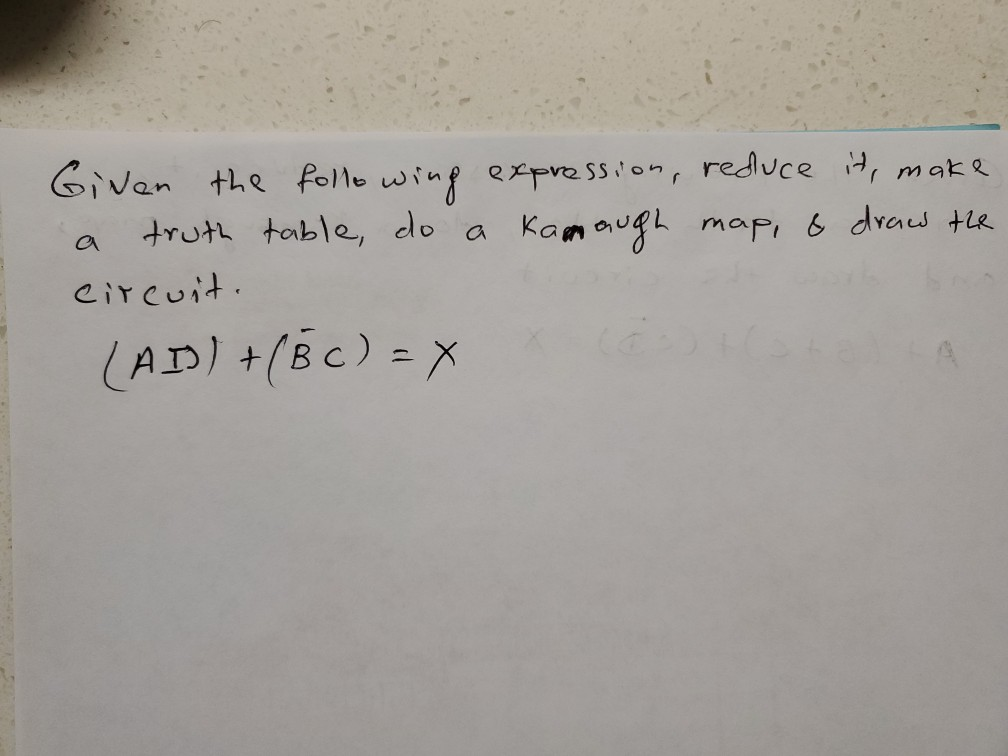 Given the following expression, reduce it, make
a truth table, do a Karnaugh map, & draw the
circuit.
(AD) + (B̄C) = X